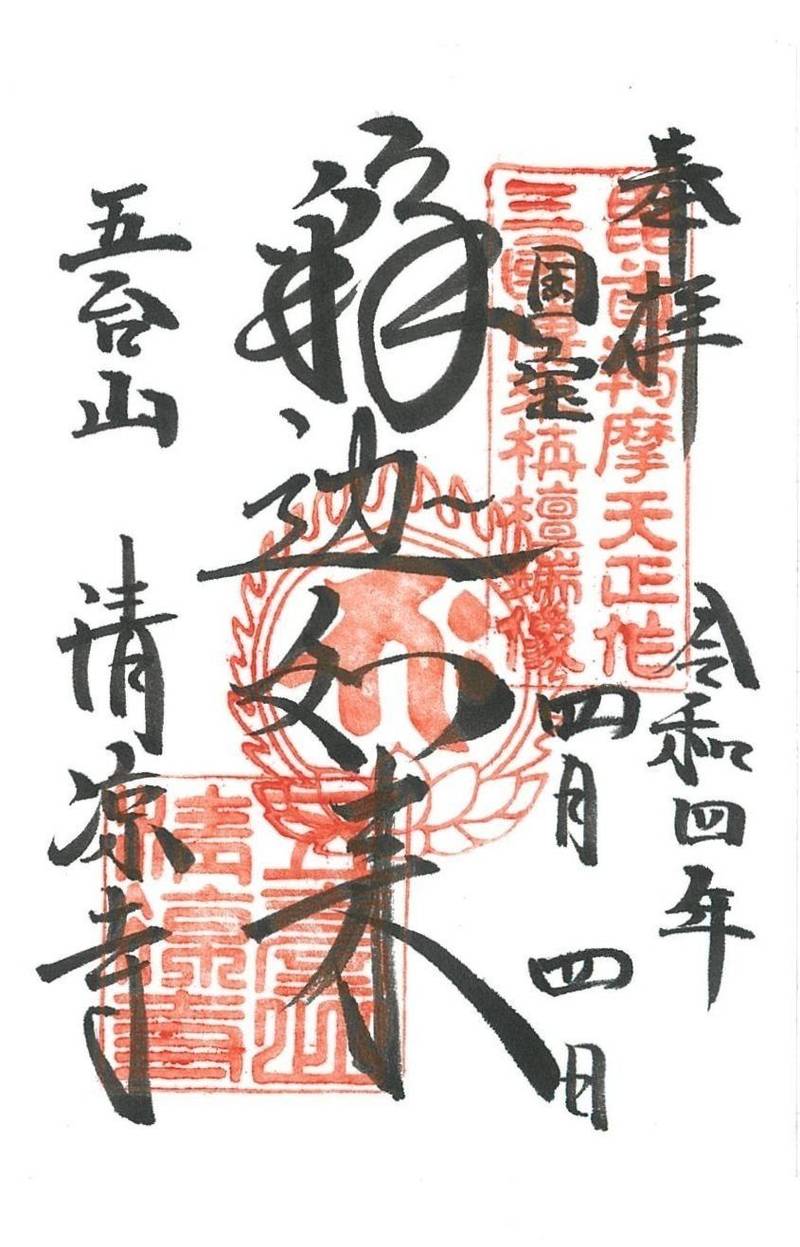 奉拝
令和四年
四月四日
毘首羯摩天正作
三國傳来栴檀瑞像
国宝
釋迦如来
五台山 清凉寺
五臺山
清凉寺